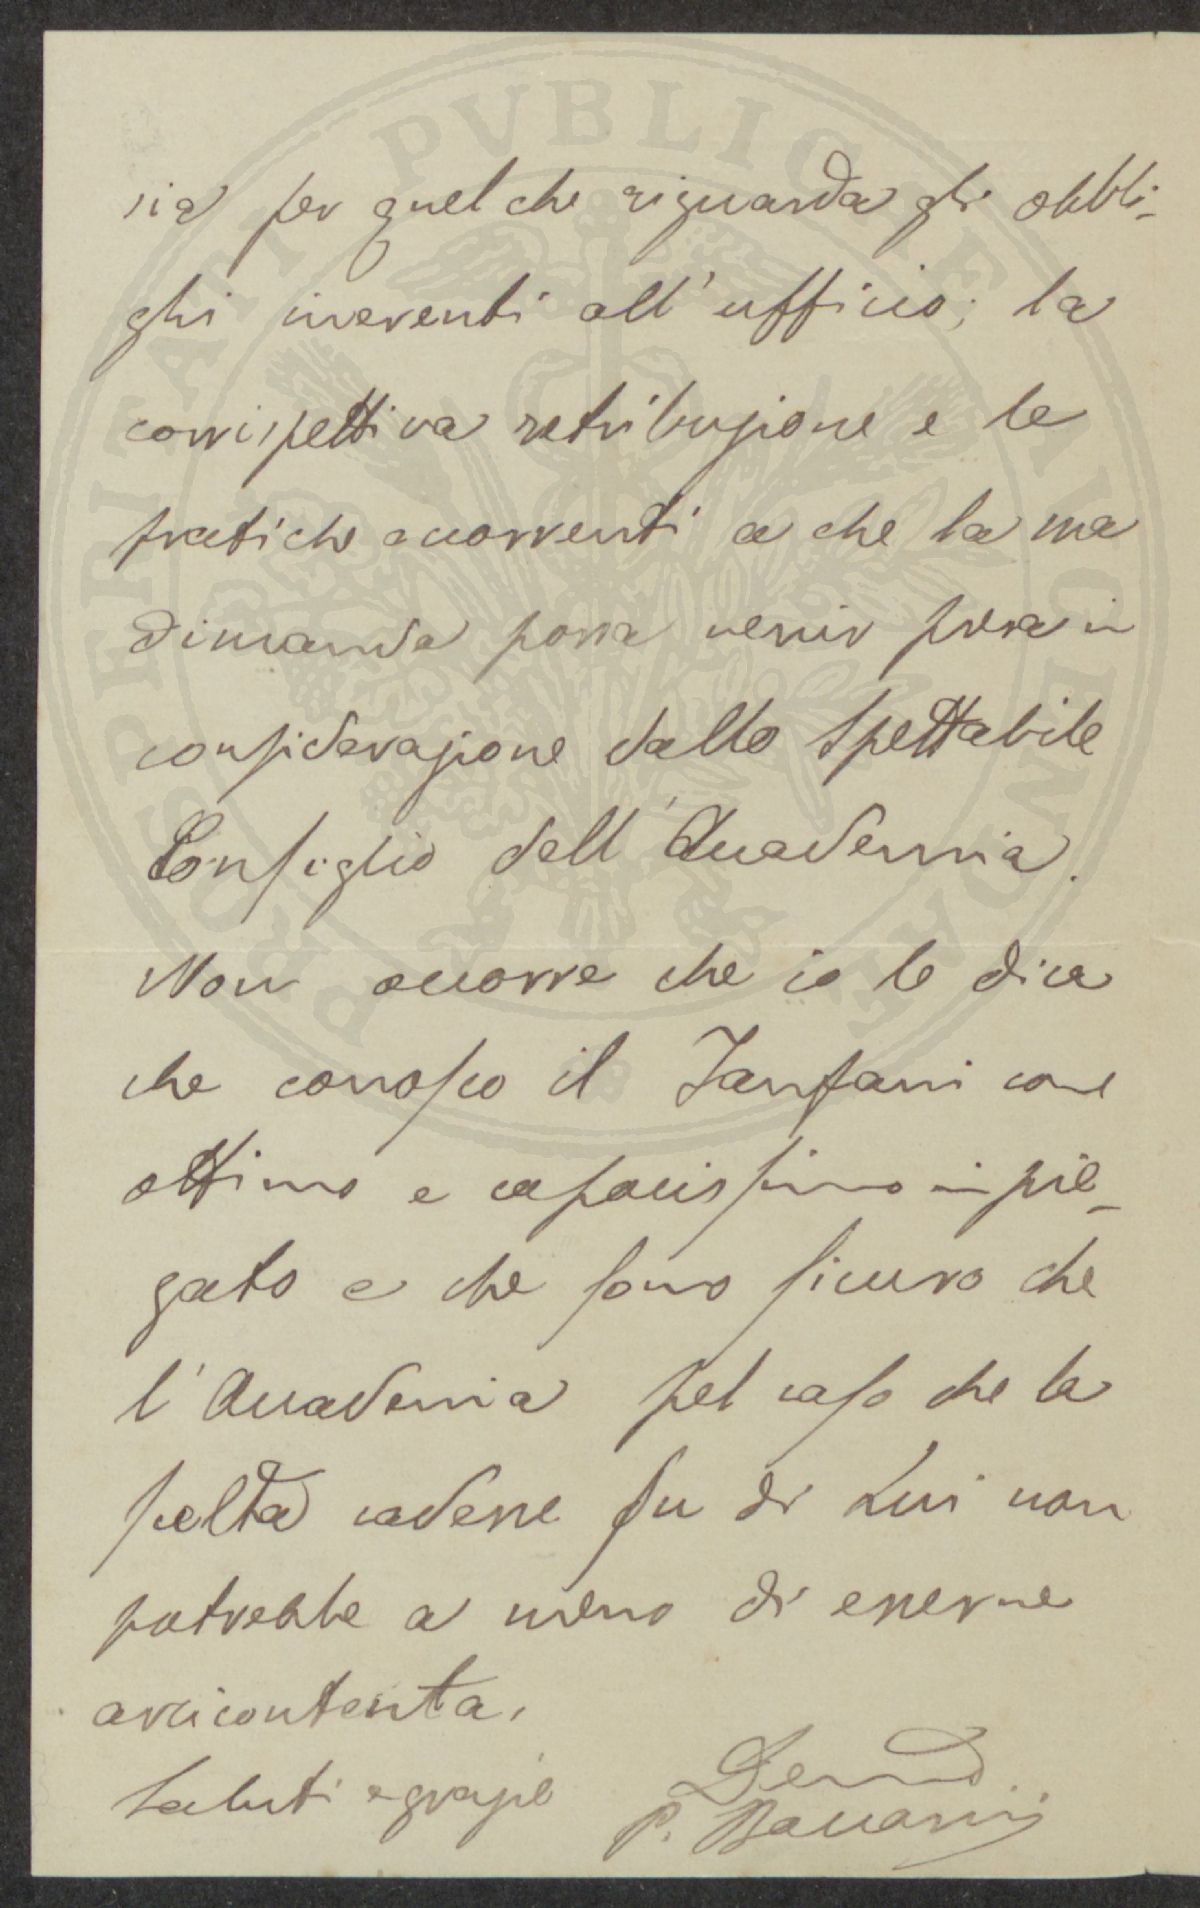 sia per quel che riguarda gli obbli-
ghi inerenti all'ufficio; la
corrispettiva retribuzione e le
pratiche occorrenti a che la sua
dimanda possa venir presa in
considerazione dallo Spettabile
Consiglio dell'Accademia.
Non occorre che io le dica
che conosco il Zanfani come
ottimo e capacissimo impie-
gato e che sono sicuro che
l'Accademia pel caso che la
scelta cadesse su di Lui non
potrebbe a meno di esserne
arcicontenta.
Saluti e grazie
P. Baccarini
PROSPERITATI PVBLICAE AVGENDAE